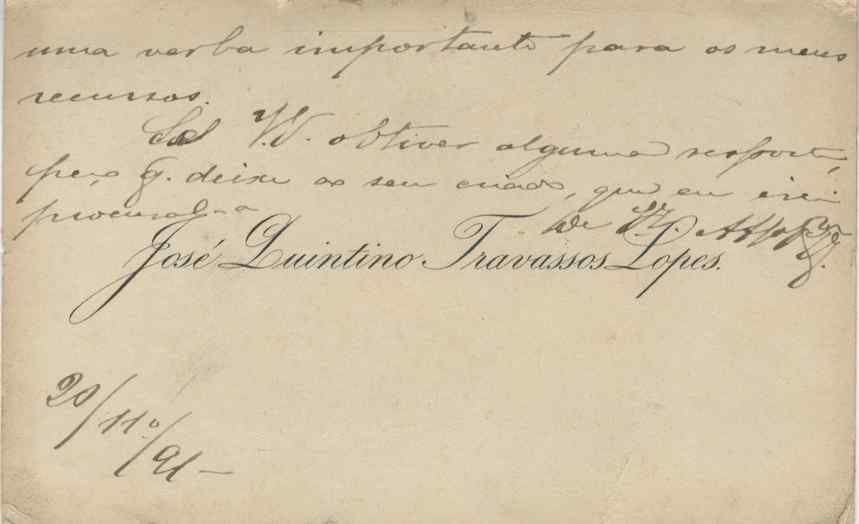 uma verba importante para os meus
recursos.
Se V. obtiver alguma resposta,
peço q. deixe ao seu criado, que eu irei
procural-a
De
José Quintino Travassos Lopes.
20/11º/91-